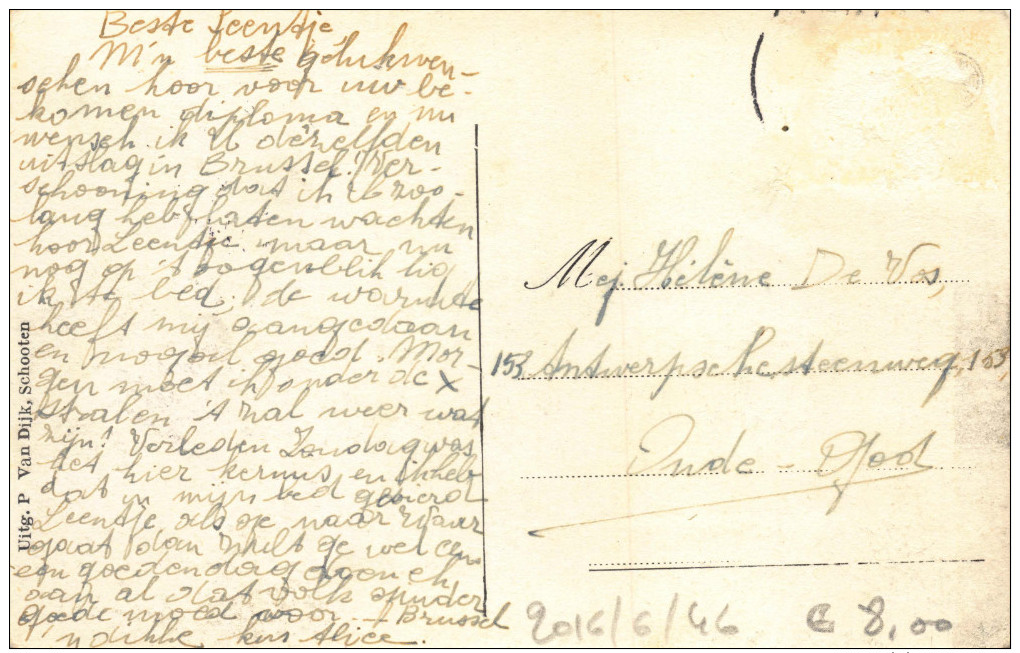 Beste Leentje,
M'n beste gelukwen-
schen hoor voor uw be-
komen diploma en nu
wensch ik U dêzelfden
uitslag in Brussel. Ver-
schooning dat ik U zoo-
lang heb laten wachten
hoor Leentje, maar nu
nog op 't oogenblik lig
ik te bed, de warmte
heeft mij aangedaan
en nogal goed. Mor-
gen moet ik onder de X
stralen 't zal weer wat
zijn! Verleden Zondag was
het hier kermis en ik heb
dat in mijn bed gevierd
Leentje als ge naar
gaat dan zult ge wel een
een goedendag doen eh,
aan al dat volk ginder
goede moed voor Brussel
'n dikke kus Alice.
Uitg. P Van Dijk, Schooten
Mej. Hélène De Vos,
153 Antwerpsche steenweg, 153,
Oude-God
2016/6/46 € 8,00